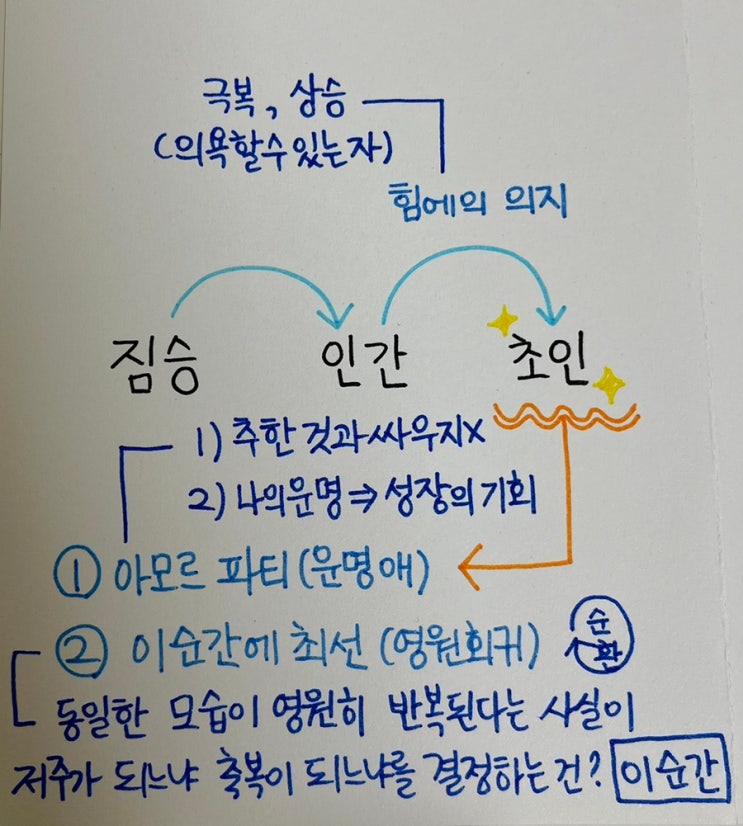 극복, 상승
(의욕할수있는자)
힘에의 의지
짐승 인간 초인
1) 추한것과싸우지X
2) 나의운명⇒성장의기회
① 아모르 파티(운명애)
② 이순간에 최선 (영원회귀) 순환
동일한 모습이 영원히 반복된다는 사실이
저주가 되느냐 축복이 되느냐를 결정하는건? 이순간